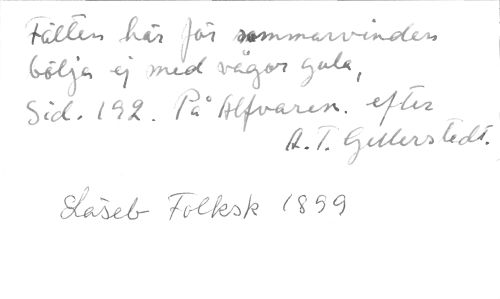 Fälten här för sommarvinden
bölja ej med vågor gula,
Sid. 192. På Alfvaren. efter
A. T. Gellerstedt.
Läseb Folksk 1899